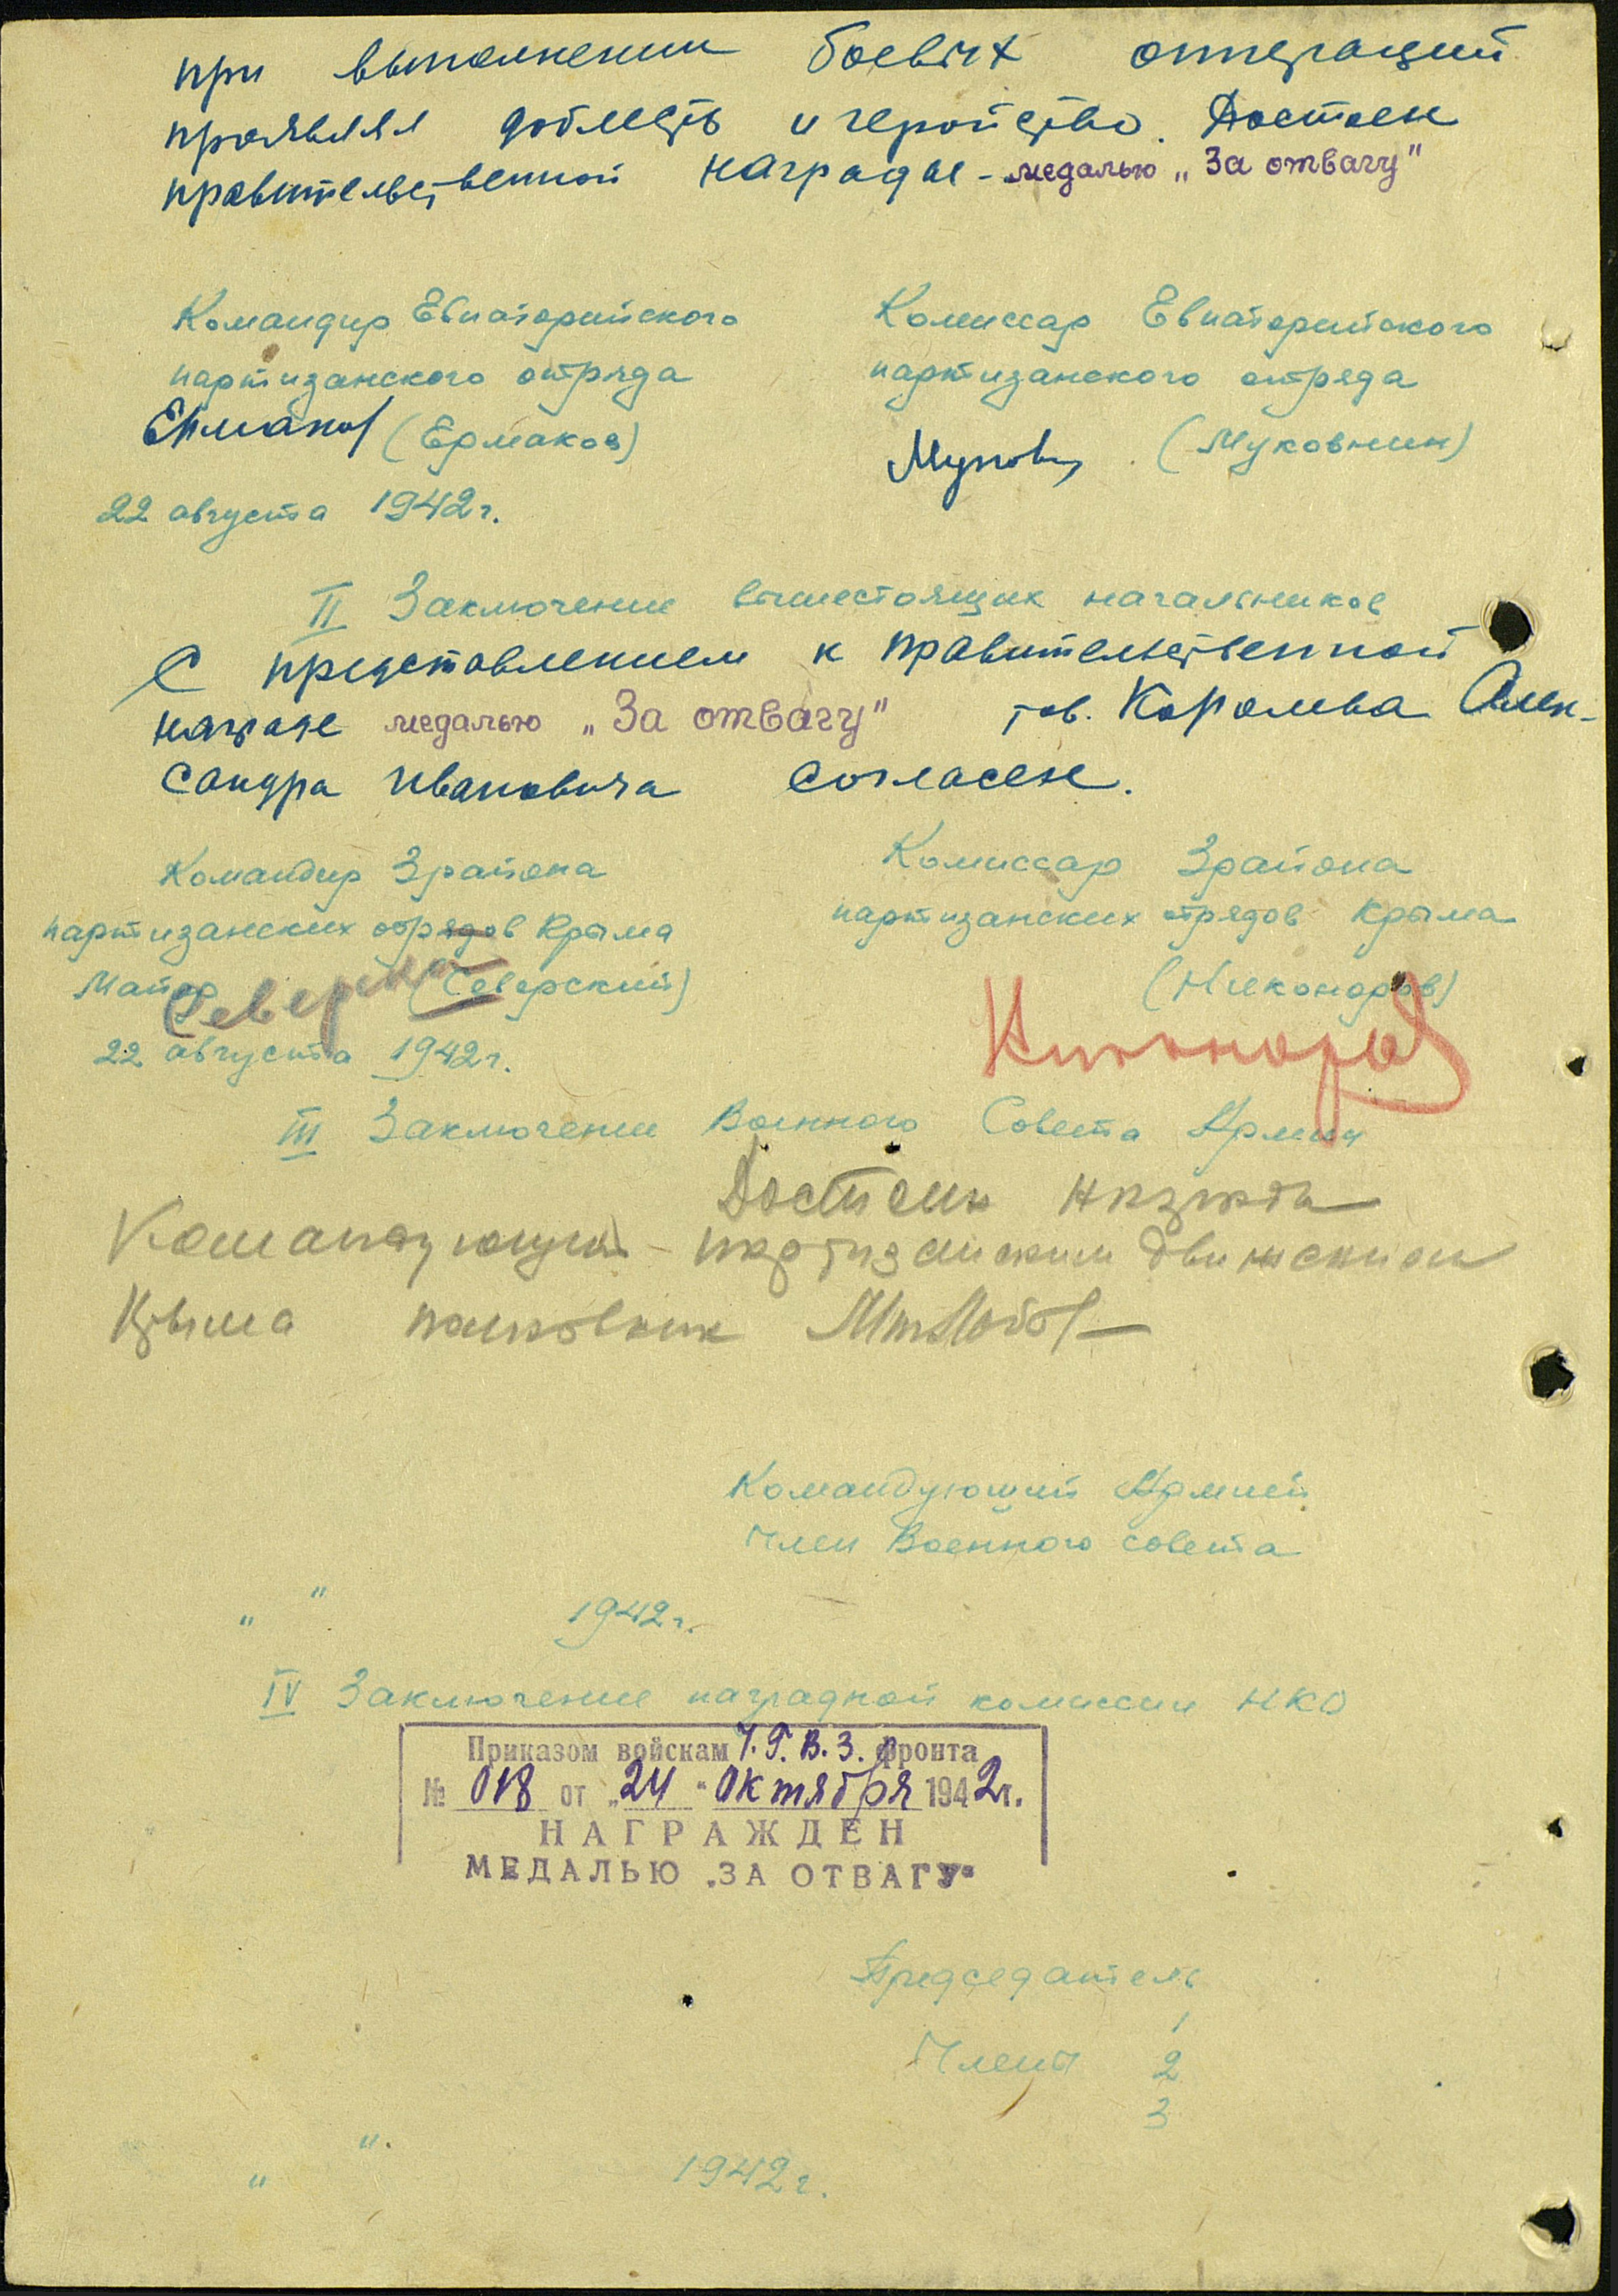 при выполнении боевых операций
проявлял доблесть и геройство. Достоен
правительственной награды - медалью „За отвагу"
Командир Евпаторийского
партизанского отряда
Ермаков (Ермаков)
22 августа 1942 г.
Комиссар Евпаторийского
партизанского отряда
(Муковнин)
II Заключение вышестоящих начальников
С представлением к правительственной
награде медалью „За отвагу" тов. Королева Алек-
сандра Ивановича согласен.
Командир 3 района
партизанских отрядов Крыма
Майор (Северский)
Северский
22 августа 1942 г.
Комиссар 3 района
партизанских отрядов Крыма
(Никаноров)
Никаноров
III Заключение Военного Совета Армии
Достоин
Командующий партизанским движением
Крыма полковник
Командующий Армией
Член Военного совета
„ " 1942 г.
IV Заключение наградной комиссии НКО
Приказом войскам Ч.Г.В.З. фронта
№ 018 от „24" октября 1942 г.
НАГРАЖДЕН
МЕДАЛЬЮ „ЗА ОТВАГУ"
Председатель
1
Члены 2
3
„ " 1942 г.